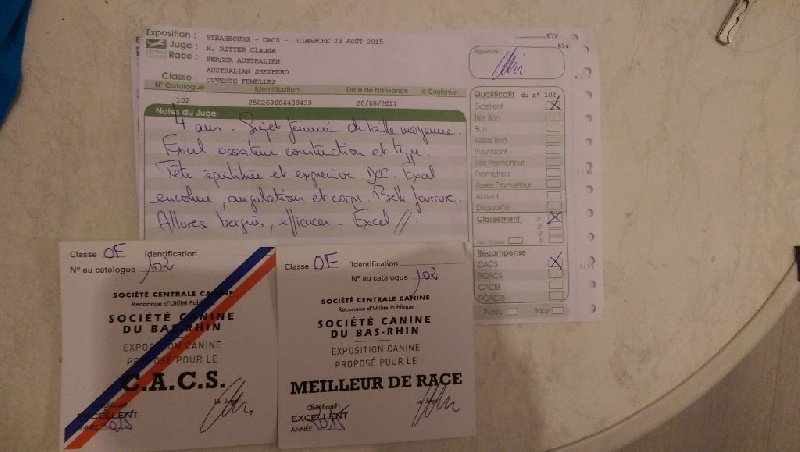 Exposition : STRASBOURG - CACS - DIMANCHE 23 AOUT 2015
Juge : M. RITTER Claude
Race : BERGER AUSTRALIEN
AUSTRALIAN SHEPHERD
Classe : OUVERTE FEMELLES
N° Catalogue Identification Date de Naissance à Confirmer
102
Notes du Juge
4 ans. Sujet féminin de taille moyenne.
Excel ossature construction et type.
Tête équilibrée et expressive
encolure, angulations et corps.
Allures
Excel
Signature :
Qualificatif du n° 102
Excellent X
Très Bon
Bon
Assez Bon
Insuffisant
Très Prometteur
Prometteur
Assez Prometteur
Absent
Disqualifié
Classement X
Récompense
CACS X
RCACS
CACIB
RCACIB
Classe OE Identification
N° au catalogue 102
SOCIÉTÉ CENTRALE CANINE
Reconnue d'Utilité Publique
SOCIÉTÉ CANINE
DU BAS-RHIN
EXPOSITION CANINE
PROPOSÉ POUR LE
C.A.C.S.
Qualificatif
EXCELLENT
Le Juge
2015
Classe OE Identification
N° au catalogue 102
SOCIÉTÉ CENTRALE CANINE
Reconnue d'Utilité Publique
SOCIÉTÉ CANINE
DU BAS-RHIN
EXPOSITION CANINE
PROPOSÉ POUR LE
MEILLEUR DE RACE
Qualificatif
EXCELLENT
Le Juge
ANNÉE 2015